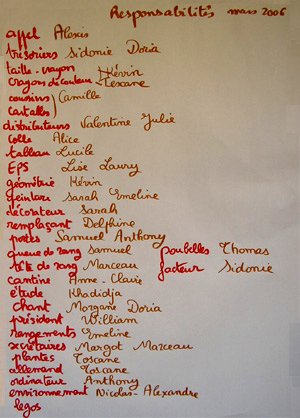 Responsabilités mars 2006
appel Alexis
trésoriers Sidonie Doria
taille-crayon Kévin
crayons de couleur Texane
coussins Camille
cartables
distributeurs Valentine Julie
colle Alice
tableau Lucile
EPS Lise Laury
géométrie Kévin
peinture Sarah Emeline
décorateur Sarah
remplaçant Delphine
portes Samuel Anthony
queue de rang Samuel poubelles Thomas
tête de rang Marceau facteur Sidonie
cantine Anne-Claire
étude Khadidja
chant Morgane Doria
président William
rangements Emeline
secrétaires Margot Marceau
plantes Toscane
allemand Toscane
ordinateur Anthony
environnement Nicolas-Alexandre
legos